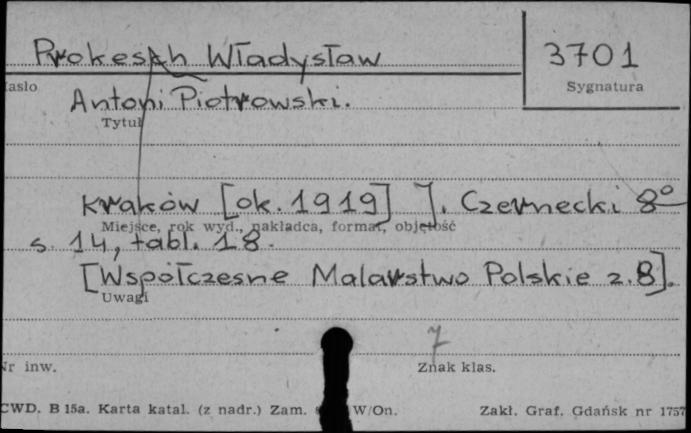 Prokesch Władysław 3701
asło Sygnatura
Antoni Piotrowski.
Tytuł
Kraków [ok. 1919] J. Czernecki 8°
Miejsce, rok wyd., nakładca, format, objętość
s. 14, tabl. 18.
[Współczesne Malarstwo Polskie z. 8].
Uwagi
7
Nr inw. Znak klas.
CWD. B 15a. Karta katal. (z nadr.) Zam. W/On. Zakł. Graf. Gdańsk nr 1757